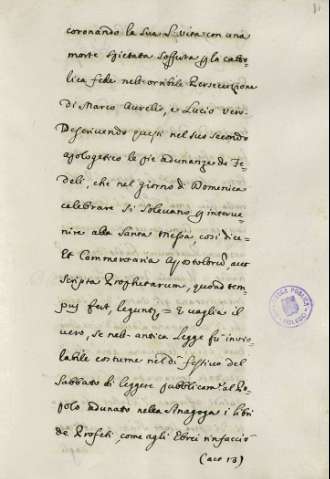 coronando la Sua S. Vita con una
morte spietata sofferta p la catto=
lica fede nell'orribile Persecuzione
di Marco Aurelio, e Lucio Vero
Descrivendo questi nel suo secondo
apologetico le pie adunanze de Fe=
deli, che nel giorno di Domenica
celebrare si solevano p interve=
nire alla Santa Messa, così dice=
Et Commentaria Apostolorũ, aut
scripta Prophetarum, quoad tem
pus fert, leguntr, = E vaglia il
vero, se nell'antica Legge fù invio=
labile costume nel dì festivo del
Sabbato di leggere pubblicamte al Po=
polo adunato nella Sinagoga i libri
de Profeti, come agli Ebrei rinfacciò
(act 13)
BIBLIOTECA PUBLICA
TOLEDO